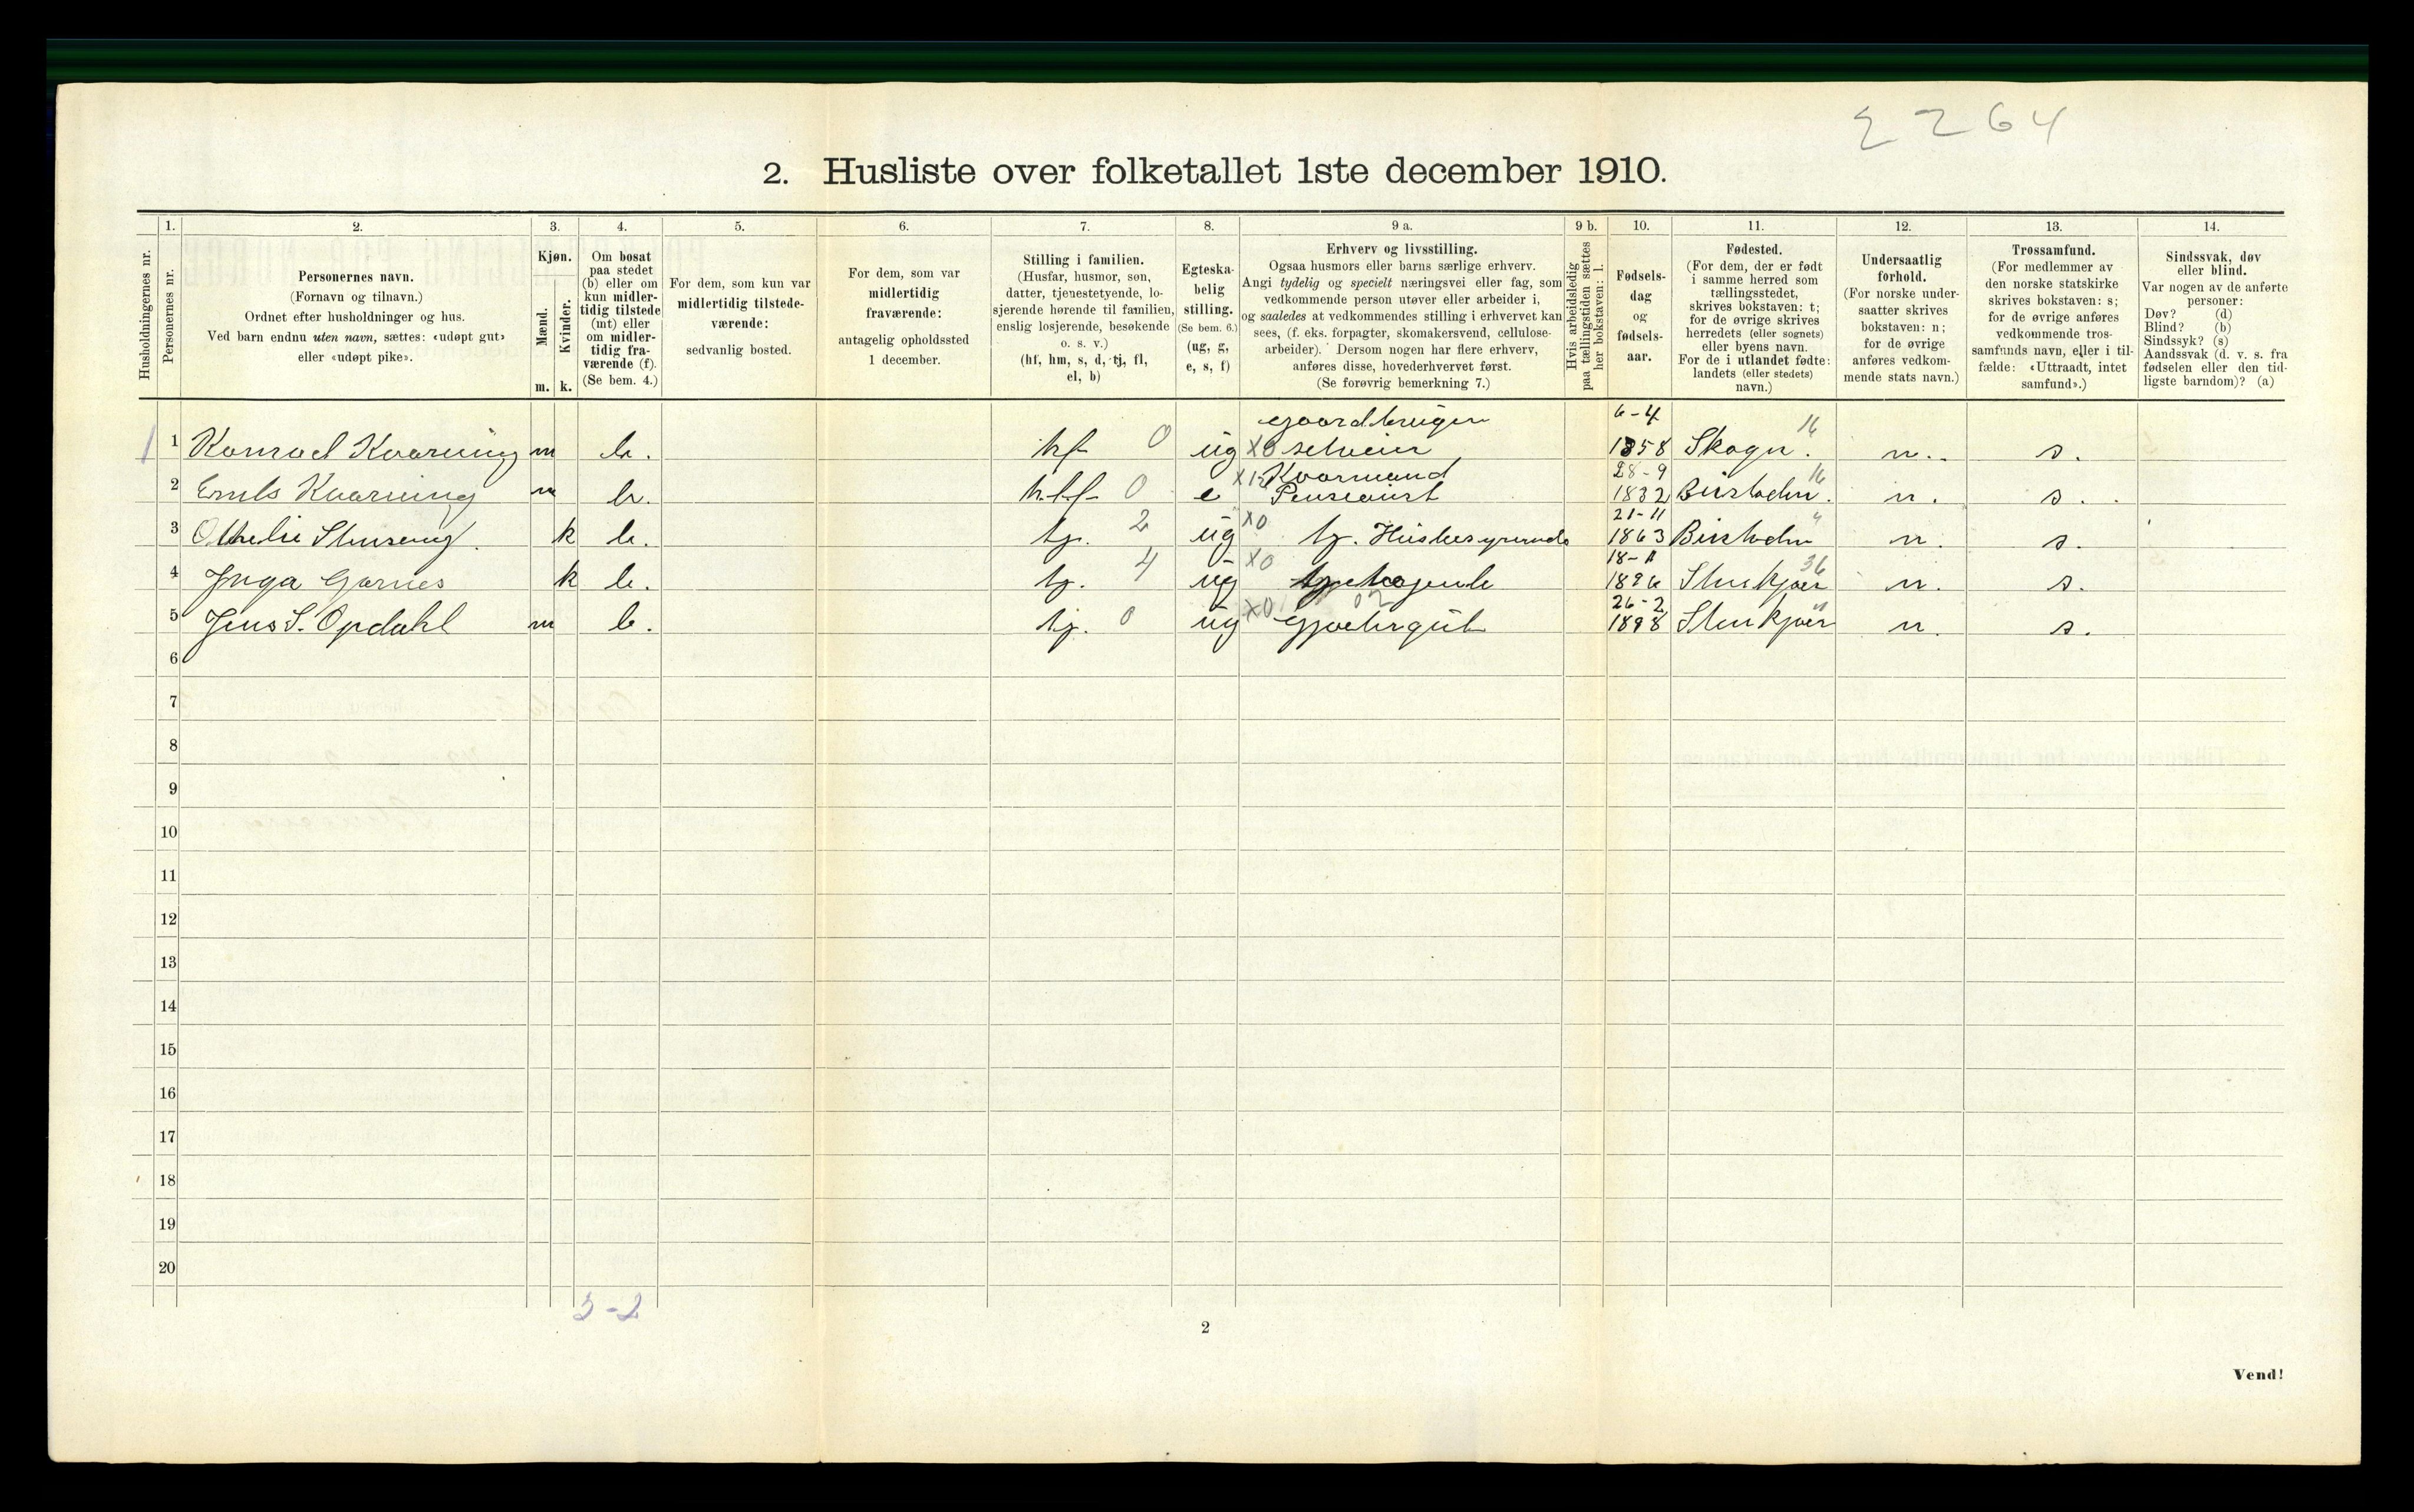 2264
2. Husliste over folketallet 1ste december 1910.
1. 2. 3. 4. 5. 6. 7. 8. 9 a. 9 b. 10. 11. 12. 13. 14.
Husholdningernes nr.
Personernes nr.
Personernes navn.
(Fornavn og tilnavn.)
Ordnet efter husholdninger og hus.
Ved barn endnu uten navn, sættes: «udøpt gut»
eller «udøpt pike».
Kjøn.
Mænd.
Kvinder.
m. k.
Om bosat
paa stedet
(b) eller om
kun midler-
tidig tilstede
(mt) eller
om midler-
tidig fra-
værende (f).
(Se bem. 4.)
For dem, som kun var
midlertidig tilstede-
værende:
sedvanlig bosted.
For dem, som var
midlertidig
fraværende:
antagelig opholdssted
1 december.
Stilling i familien.
(Husfar, husmor, søn,
datter, tjenestetyende, lo-
sjerende hørende til familien,
enslig losjerende, besøkende
o. s. v.)
(hf, hm, s, d, tj, fl,
el, b)
Egteska-
belig
stilling.
(Se bem. 6.)
(ug, g,
e, s, f)
Erhverv og livsstilling.
Ogsaa husmors eller barns særlige erhverv.
Angi tydelig og specielt næringsvei eller fag, som
vedkommende person utøver eller arbeider i,
og saaledes at vedkommendes stilling i erhvervet kan
sees, (f. eks. forpagter, skomakersvend, cellulose-
arbeider). Dersom nogen har flere erhverv,
anføres disse, hovederhvervet først.
(Se forøvrig bemerkning 7.)
Hvis arbeidsledig
paa tællingstiden sættes
her bokstaven: l.
Fødsels-
dag
og
fødsels-
aar.
Fødested.
(For dem, der er født
i samme herred som
tællingsstedet,
skrives bokstaven: t;
for de øvrige skrives
herredets (eller sognets)
eller byens navn.
For de i utlandet fødte:
landets (eller stedets)
navn.)
Undersaatlig
forhold.
(For norske under-
saatter skrives
bokstaven: n;
for de øvrige
anføres vedkom-
mende stats navn.)
Trossamfund.
(For medlemmer av
den norske statskirke
skrives bokstaven: s;
for de øvrige anføres
vedkommende tros-
samfunds navn, eller i til-
fælde: «Uttraadt, intet
samfund».)
Sindssvak, døv
eller blind.
Var nogen av de anførte
personer:
Døv? (d)
Blind? (b)
Sindssyk? (s)
Aandssvak (d. v. s. fra
fødselen eller den tid-
ligste barndom)? (a)
gaardbruger 6-4
1 1 Konrad Kvarving m b. hf 0 ug X0 selveier 1858 Skogn. 16 n. s.
Kaarmand 28-9
2 Kvarving m b. 0 e 1832 16 n. s.
21-11
3 k b. tj. 2 ug X0 tj. 1863 n. s.
4 Inga Garnes k b. tj. 4 ug X0 Stenkjær 36 n. s.
26-2
5 Jens S. Opdahl m b. tj. 0 ug X0 Gjætergut 1898 Stenkjær n. s.
6
7
8
9
10
11
12
13
14
15
16
17
18
19
20
3-2
2
Vend!